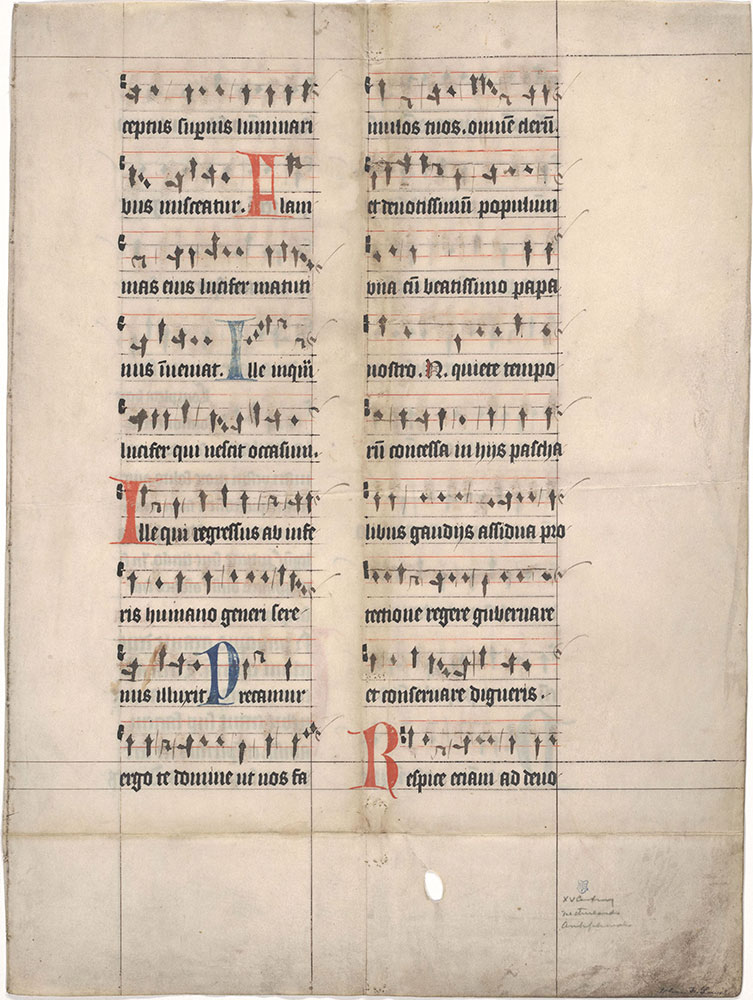 ceptus sup̄nis luminari
bus misceatur. Flam
mas eius lucifer matuti
nus īueniat. Ille inquā
lucifer qui nescit occasum.
Ille qui regressus ab infe
ris humano generi sere
nus illuxit Precamur
ergo te domine ut nos fa
mulos tuos. omnē clerū.
et deuotissimū populum
vna cū beatissimo papa
nostro. N. quiete tempo
rū concessa in hijs pascha
libus gaudijs assidua pro
tectione regere gubernare
et conseruare digneris.
Respice etiam ad deuo
XV Century
Netherlands